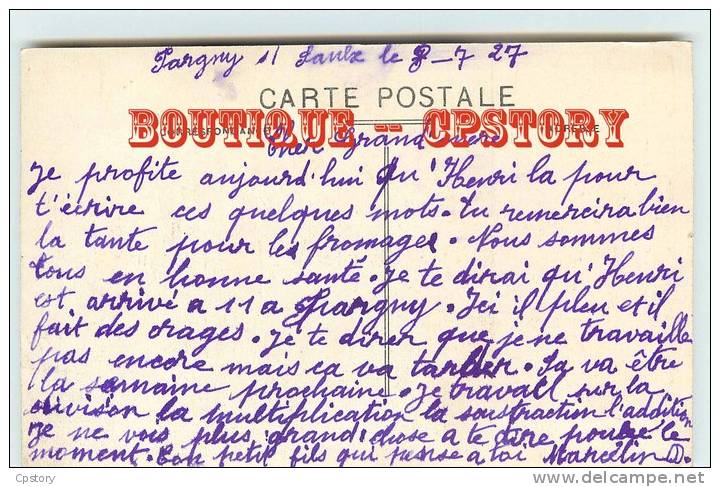 Pargny s/ Saulx le 8-7 27
CARTE POSTALE
BOUTIQUE -- CPSTORY
CORRESPONDANCE
Cher Grand père
Je profite aujourd'hui qu'Henri la pour
t'écrire ces quelques mots. tu remerceira bien
la tante pour les fromages. Nous sommes
tous en bonne santé. Je te dirai qu'Henri
est arrivé a 11 a Pargny. Ici il pleu et il
fait des orages. Je te direr que je ne travaille
pas encore mais ca va tarder. Sa va être
la semaine prochaine. Je travall sur la
division la multiplication la soustraction l'addition
Je ne vois plus grand chose a te dire pour le
moment. Ton petit fils qui pense a toi Marcelin D.
Cpstory
delcampe.net